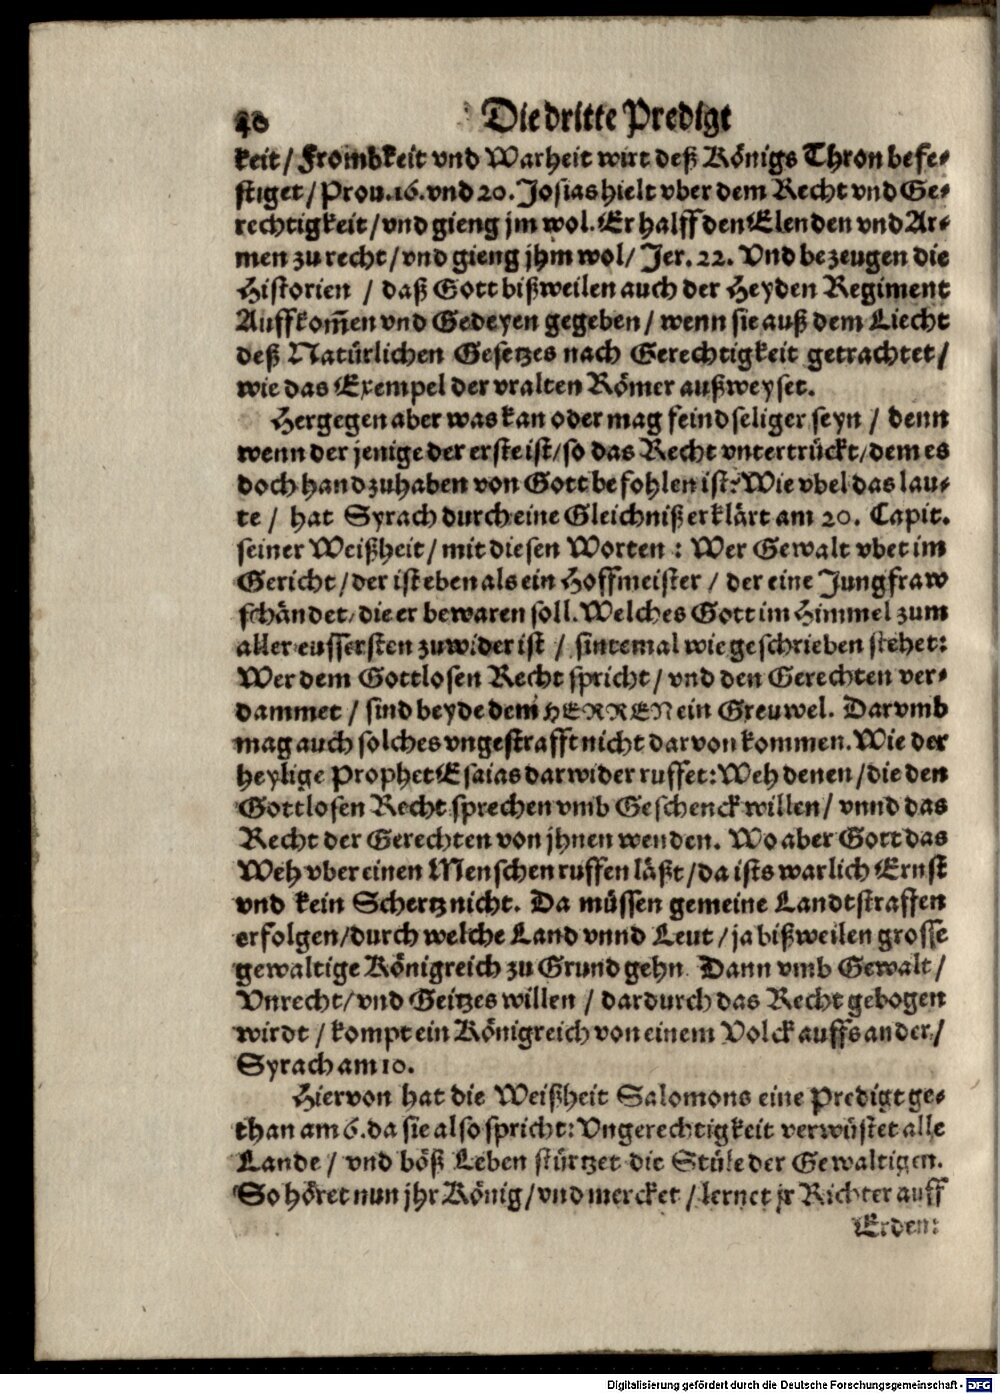 40 Die dritte Predigt
keit / Frombkeit vnd Warheit wirt deß Königs Thron befe-
stiget / Prou. 16. vnd 20. Josias hielt vber dem Recht vnd Ge-
rechtigkeit / vnd gieng jm wol. Er halff den Elenden vnd Ar-
men zu recht / vnd gieng jhm wol / Jer. 22. Vnd bezeugen die
Historien / daß Gott bißweilen auch der Heyden Regiment
Auffkom̃en vnd Gedeyen gegeben / wenn sie auß dem Liecht
deß Natürlichen Gesetzes nach Gerechtigkeit getrachtet /
wie das Exempel der vralten Römer außweyset.
Hergegen aber was kan oder mag feindseliger seyn / denn
wenn der jenige der erste ist / so das Recht vntertrückt / dem es
doch handzuhaben von Gott befohlen ist? Wie vbel das lau-
te / hat Syrach durch eine Gleichniß erklärt am 20. Capit.
seiner Weißheit / mit diesen Worten : Wer Gewalt vbet im
Gericht / der ist eben als ein Hoffmeister / der eine Jungfraw
schändet / die er bewaren soll. Welches Gott im Himmel zum
aller eussersten zuwider ist / sintemal wie geschrieben stehet:
Wer dem Gottlosen Recht spricht / vnd den Gerechten ver-
dammet / sind beyde dem HERREN ein Greuwel. Darvmb
mag auch solches vngestrafft nicht darvon kommen. Wie der
heylige Prophet Esaias darwider ruffet: Weh denen / die den
Gottlosen Recht sprechen vmb Geschenck willen / vnnd das
Recht der Gerechten von jhnen wenden. Wo aber Gott das
Weh vber einen Menschen ruffen läßt / da ists warlich Ernst
vnd kein Schertz nicht. Da müssen gemeine Landtstraffen
erfolgen / durch welche Land vnnd Leut / ja bißweilen grosse
gewaltige Königreich zu Grund gehn. Dann vmb Gewalt /
Vnrecht / vnd Geitzes willen / dardurch das Recht gebogen
wirdt / kompt ein Königreich von einem Volck auffs ander /
Syrach am 10.
Hiervon hat die Weißheit Salomons eine Predigt ge-
than am 6. da sie also spricht: Vngerechtigkeit verwüstet alle
Lande / vnd böß Leben stürtzet die Stüle der Gewaltigen.
So höret nun jhr König / vnd mercket / lernet jr Richter auff
Erden:
Digitalisierung gefördert durch die Deutsche Forschungsgemeinschaft - DFG